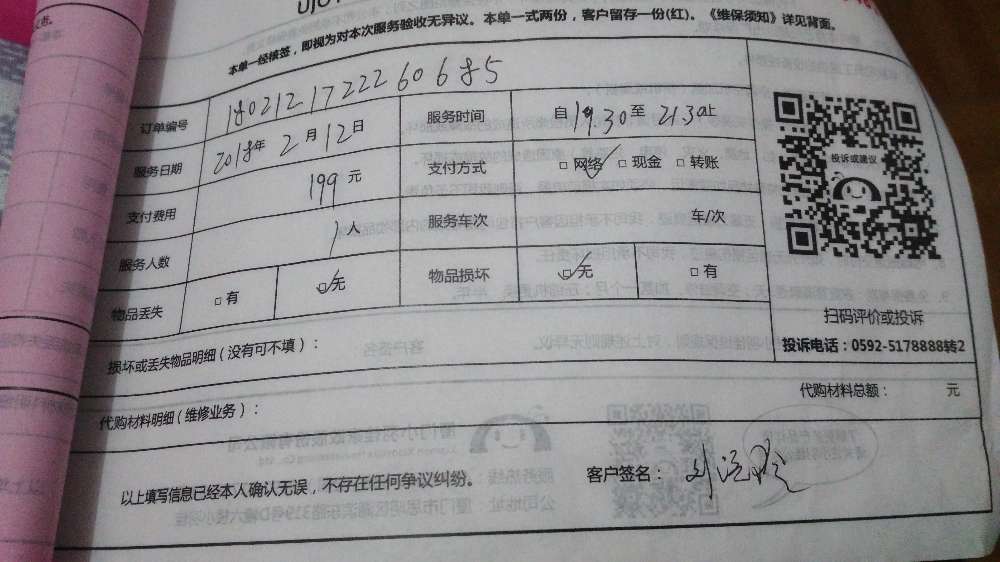 本单一经核签，即视为对本次服务验收无异议。本单一式两份，客户留存一份(红)。《维保须知》详见背面。
订单编号 180212172226068 5
服务时间 自19.30至21.30止
服务日期 2018年2月12日
支付方式 □网络 □现金 □转账
投诉或建议
支付费用 199元
服务人数 1人
服务车次 车/次
物品丢失 □有 □无
物品损坏 □无 □有
扫码评价或投诉
投诉电话：0592-5178888转2
损坏或丢失物品明细（没有可不填）：
代购材料明细（维修业务）：
代购材料总额： 元
以上填写信息已经本人确认无误，不存在任何争议纠纷。
客户签名：